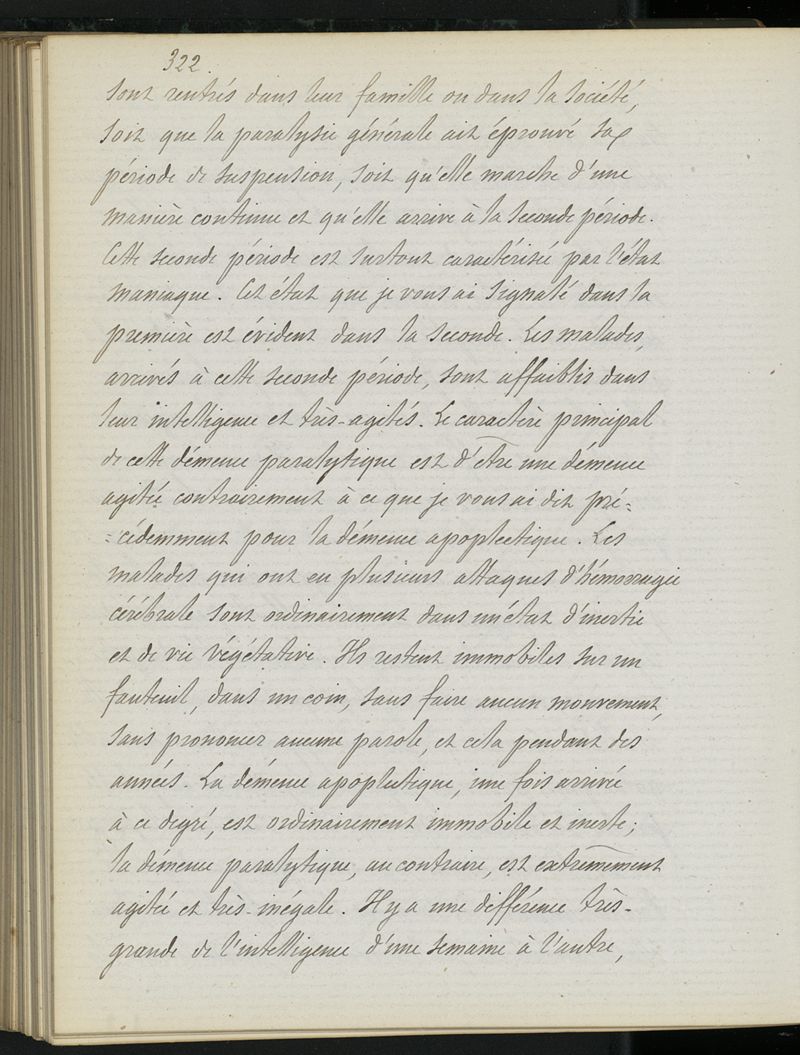 322.
sont rentrés dans leur famille ou dans la société,
soit que la paralysie générale ait éprouvé sa
période de suspension, soit qu'elle marche d'une
manière continue et qu'elle arrive à la seconde période.
Cette seconde période est surtout caractérisée par l'état
maniaque. Cet état que je vous ai signalé dans la
première est évident dans la seconde. Les malades,
arrivés à cette seconde période, sont affaiblis dans
leur intelligence et très-agités. Le caractère principal
de cette démence paralytique est d'être une démence
agitée contrairement à ce que je vous ai dit pré-
-cédemment pour la démence apoplectique. Les
malades qui ont eu plusieurs attaques d'hémorragie
cérébrale sont ordinairement dans un état d'inertie
et de vie végétative. Ils restent immobiles sur un
fauteuil, dans un coin, sans faire aucun mouvement,
sans prononcer aucune parole, et cela pendant des
années. La démence apoplectique, une fois arrivée
à ce degré, est ordinairement immobile et inerte;
la démence paralytique, au contraire, est extrêmement
agitée et très-inégale. Il y a une différence très-
grande de l'intelligence d'une semaine à l'autre,